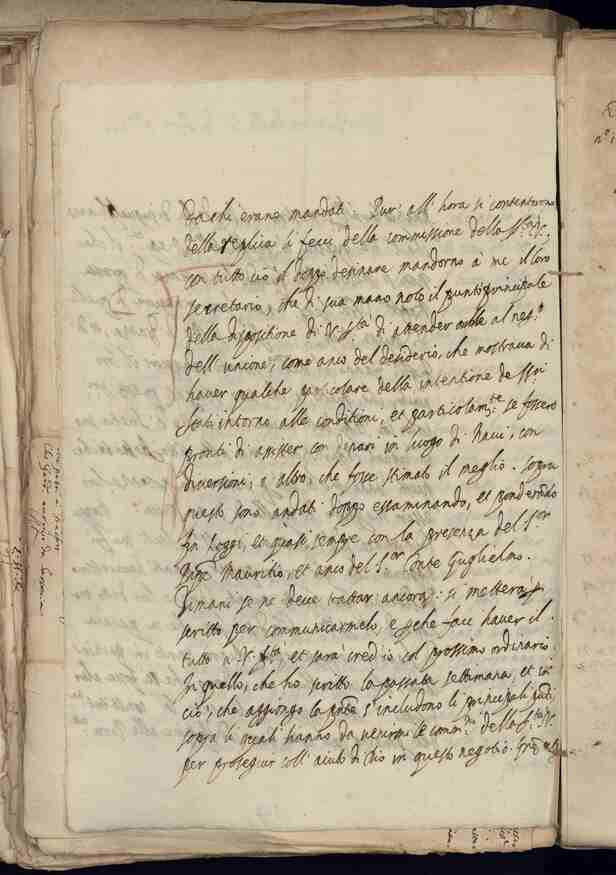 da chi erano mandati. Pur' all' hora si contentorno
della replica li feci della commissione della S.tà V.
con tutto ciò il doppo desinare mandorno à me il loro
secretario, che di sua mano notò il punto principale
della dispositione di V. S.tà di attender al neg.o
dell' unione, come anco del desiderio, che mostraua di
hauer qualche particolare della intentione de SS.ri
Stati intorno alle conditioni, et particolarm.te se fossero
pronti di assister con denari in luogo di Naui, con
diuersioni, o altro, che fosse stimato il meglio. sopra
questo sono andati doppo essaminando, et ponderando
fin hoggi, et quasi sempre con la presenza del S.or
Mauritio, et anco del S.or Conte Guglielmo.
Dimani se ne deue trattar ancora: si metterà
scritto per communicarmelo, che facci hauer il
tutto a V. S.tà et sarà cred'io col prossimo ordinario.
In quello, che ho scritto la passata settimana, et in
ciò, che aggiongo la s'includono li principali
sopra li quali hanno da uenirmi le comm.ni della S.tà V.
per proseguir coll' aiuto di Dio in questo negotio.